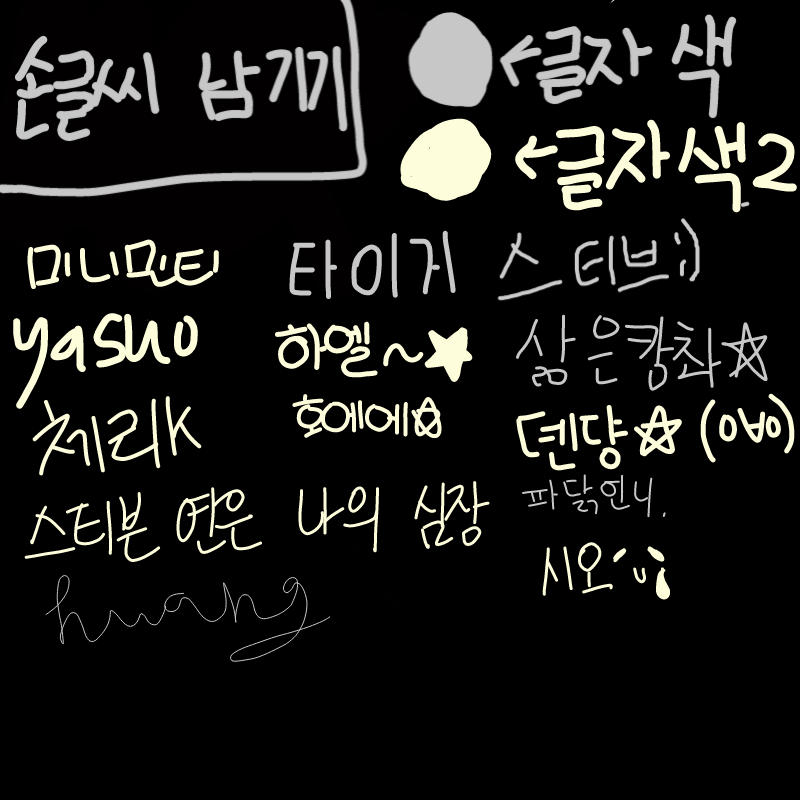 손글씨 남기기
←글자 색
←글자 색2
미니민티 타이거 스티브:)
yasuo 하엘~★ 삶은캉촤☆
체리K 호에에☆ 덴댱☆(OVO)
스티븐 연은 나의 심장 파닭언니.
시오
huang